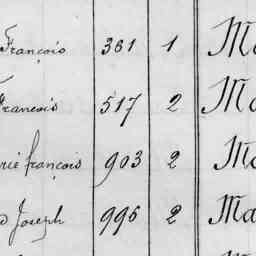 François 361 1 Ma
François 517 2 Ma
rie françois 903 2 Ma
d Joseph 996 2 Ma